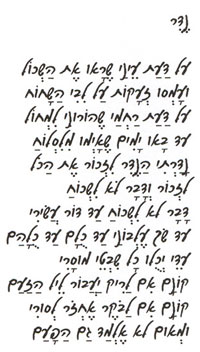 נֶדֶר
עַל דַּעַת עֵינַי שֶׁרָאוּ אֶת הַשְּׁכוֹל
וְעָמְסוּ זְעָקוֹת עַל לִבִּי הַשָּׁחוֹחַ
עַל דַּעַת רַחֲמַי שֶׁהוֹרוּנִי לִמְחוֹל
עַד בָּאוּ יָמִים שֶׁאָיְמוּ מִלִּסְלוֹחַ
נָדַרְתִּי הַנֶּדֶר לִזְכּוֹר אֶת הַכֹּל
לִזְכּוֹר וְדָבָר לֹא לִשְׁכּוֹחַ
דָּבָר לֹא לִשְׁכּוֹחַ עַד דּוֹר עֲשִׂירִי
עַד שֹׁךְ עֶלְבּוֹנַי עַד כֻּלָּם עַד כֻּלָּהַם
עַד יִכְלוּ כָּל שִׁבְטֵי מוּסָרִי
קוֹנָם אִם לָרִיק יַעֲבוֹר לֵיל הַזַּעַם
קוֹנָם אִם לַבֹּקֶר אֶחֱזֹר לְסוּרִי
וּמְאוּם לֹא אֶלְמַד גַּם הַפַּעַם